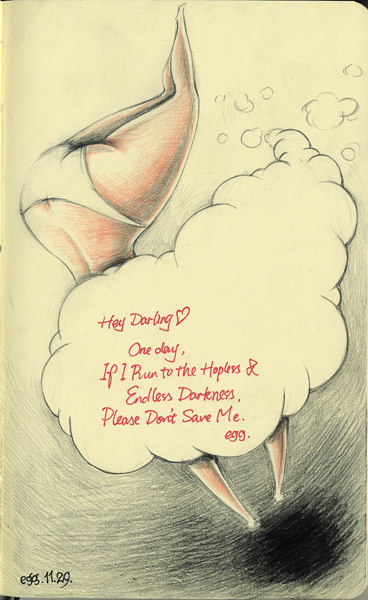 Hey Darling♡
One day,
If I Run to the Hopless &
Endless Darkness,
Please Don't Save Me.
egg.
egg.11.29.